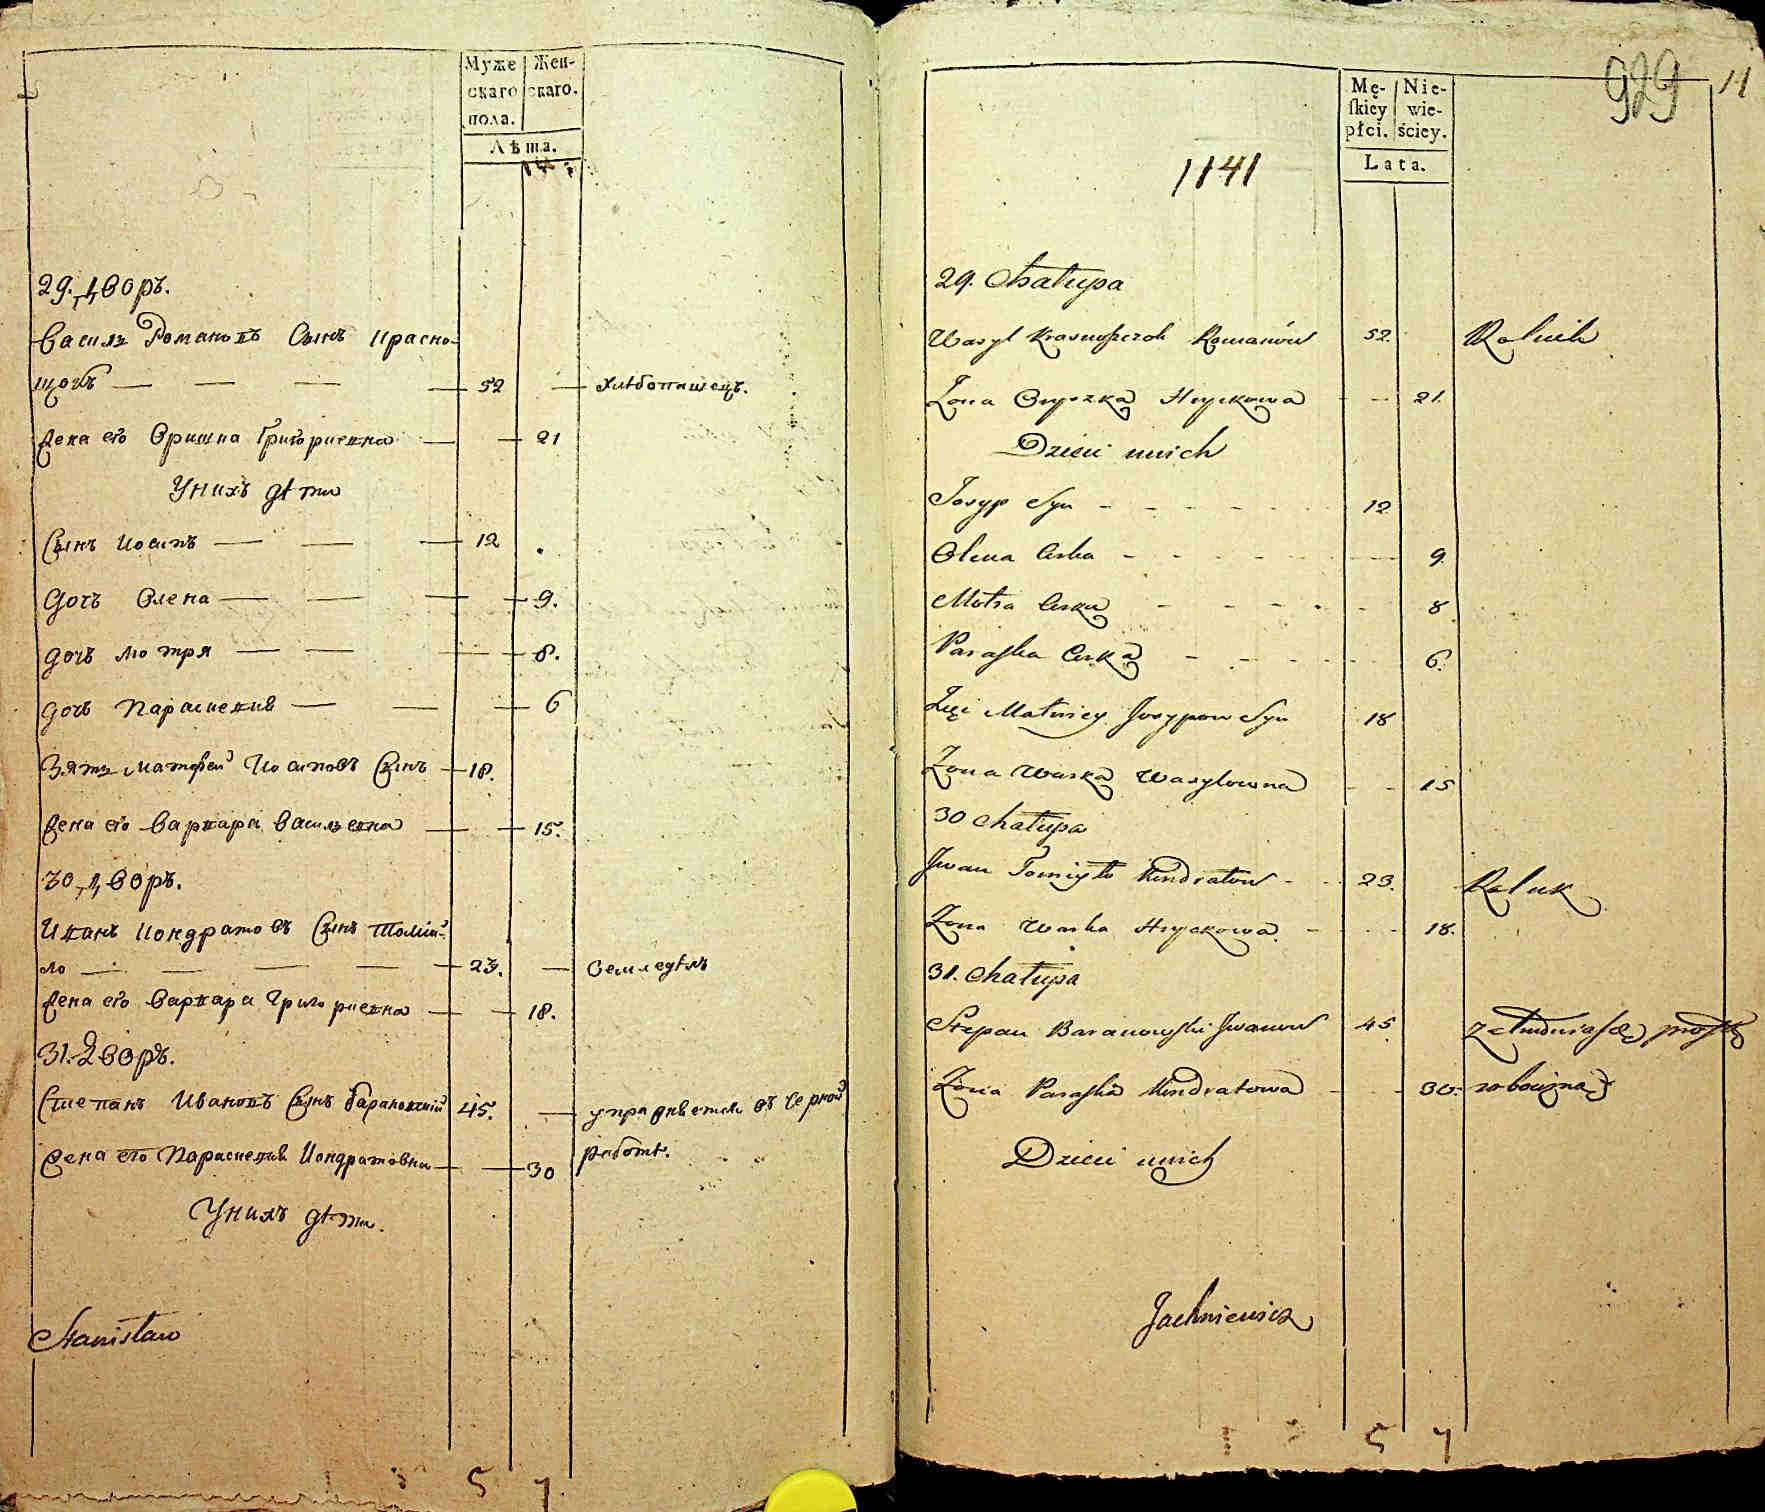 Муже Жен-
скаго скаго.
пола.
Лѣта.
29. Дворъ.
Василь Романовъ Сынъ Красно-
щокъ — — — — 52 — хлѣбопашецъ.
Жена его Оришка Григориевна — — 21
У нихъ дѣти
Сынъ Иосипъ — — — 12
Дочъ Олена — — — — 9.
дочъ Мотря — — — — 8.
дочъ Парасковия — — — 6
Зять Матфей Иосиповъ Сынъ — 18.
Жена его Варвара Васильевна — — 15.
30. Дворъ.
Иванъ Кондратовъ Сынъ Томий-
ло — — — — — 23. — Земледѣлъ
Жена его Варвара Григориевна — — 18.
31. Дворъ.
Степанъ Ивановъ Сынъ Барановский 45. — упражняется въ Черной
Жена его Парасковия Кондратовна — — 30 работе.
У нихъ дѣти.
Stanisław
5 7
929 11
Mę- Nie-
skiey wie-
płci. ściey.
Lata.
1141
29. Chałupa
Wasyl Krasnoszczok Romanów 52. Rolnik
Żona Oryszka Hryckowa - - 21.
Dzieci u nich
Josyp Syn - - - - - 12
Olena Curka - - - - - 9.
Motra Curka - - - - - 8
Paraska Curka - - - - - 6.
Zięć Matwiey Josypow Syn 18
Żona Warka Wasylowna - - 15
30 Chałupa
Jwan Tomiyło Kondratow - - 23. Rolnik
Żona Warka Hryckowa. - - - 18.
31. Chałupa
Stepan Baranowski Jwanow 45. zatrudnia się prostą
Żona Paraska Kondratowa - - 30. robocizną
Dzieci u nich
Jachniewicz
5 7